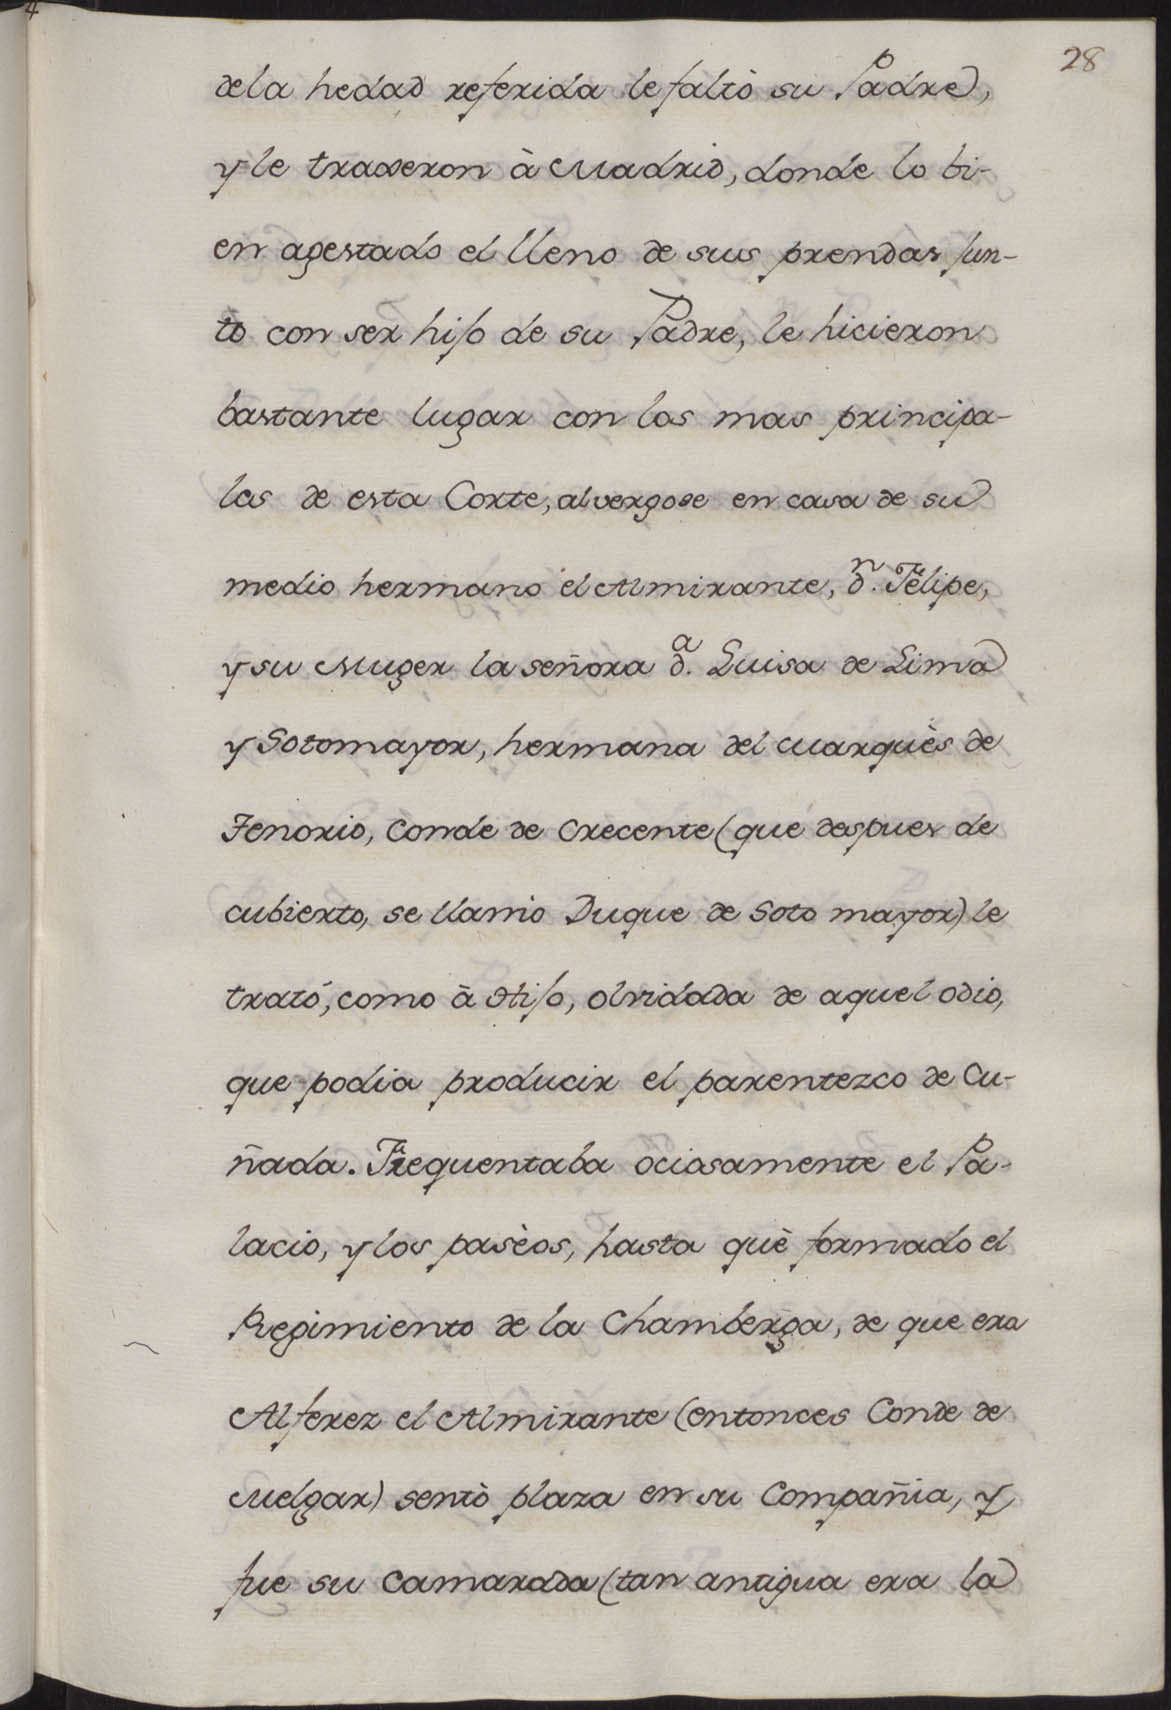 28
dela hedad referida le faltò su Padre,
y le traxeron à Madrid, donde lo bi-
en agestado el lleno de sus prendas jun-
to con ser hijo de su Padre, le hicieron
bastante lugar con los mas principa-
les de esta Corte, alvergose en casa de su
medio hermano el Almirante, dn. Felipe,
y su Muger la señora da. Luisa de Lima
y Sotomayor, hermana del Marquès de
Tenorio, Conde de Crecente (que despues de
cubierto, se llamo Duque de Soto mayor) le
trató, como à Hijo, olvidada de aquel odio,
que podia producir el parentezco de Cu-
ñada. Frequentaba ociosamente el Pa-
lacio, y los pasèos, hasta què formado el
Regimiento de la Chamberga, de que era
Alferez el Almirante (entonces Conde de
Melgar) sentò plaza en su Compañia, y
fue su Camarada (tan antigua era la